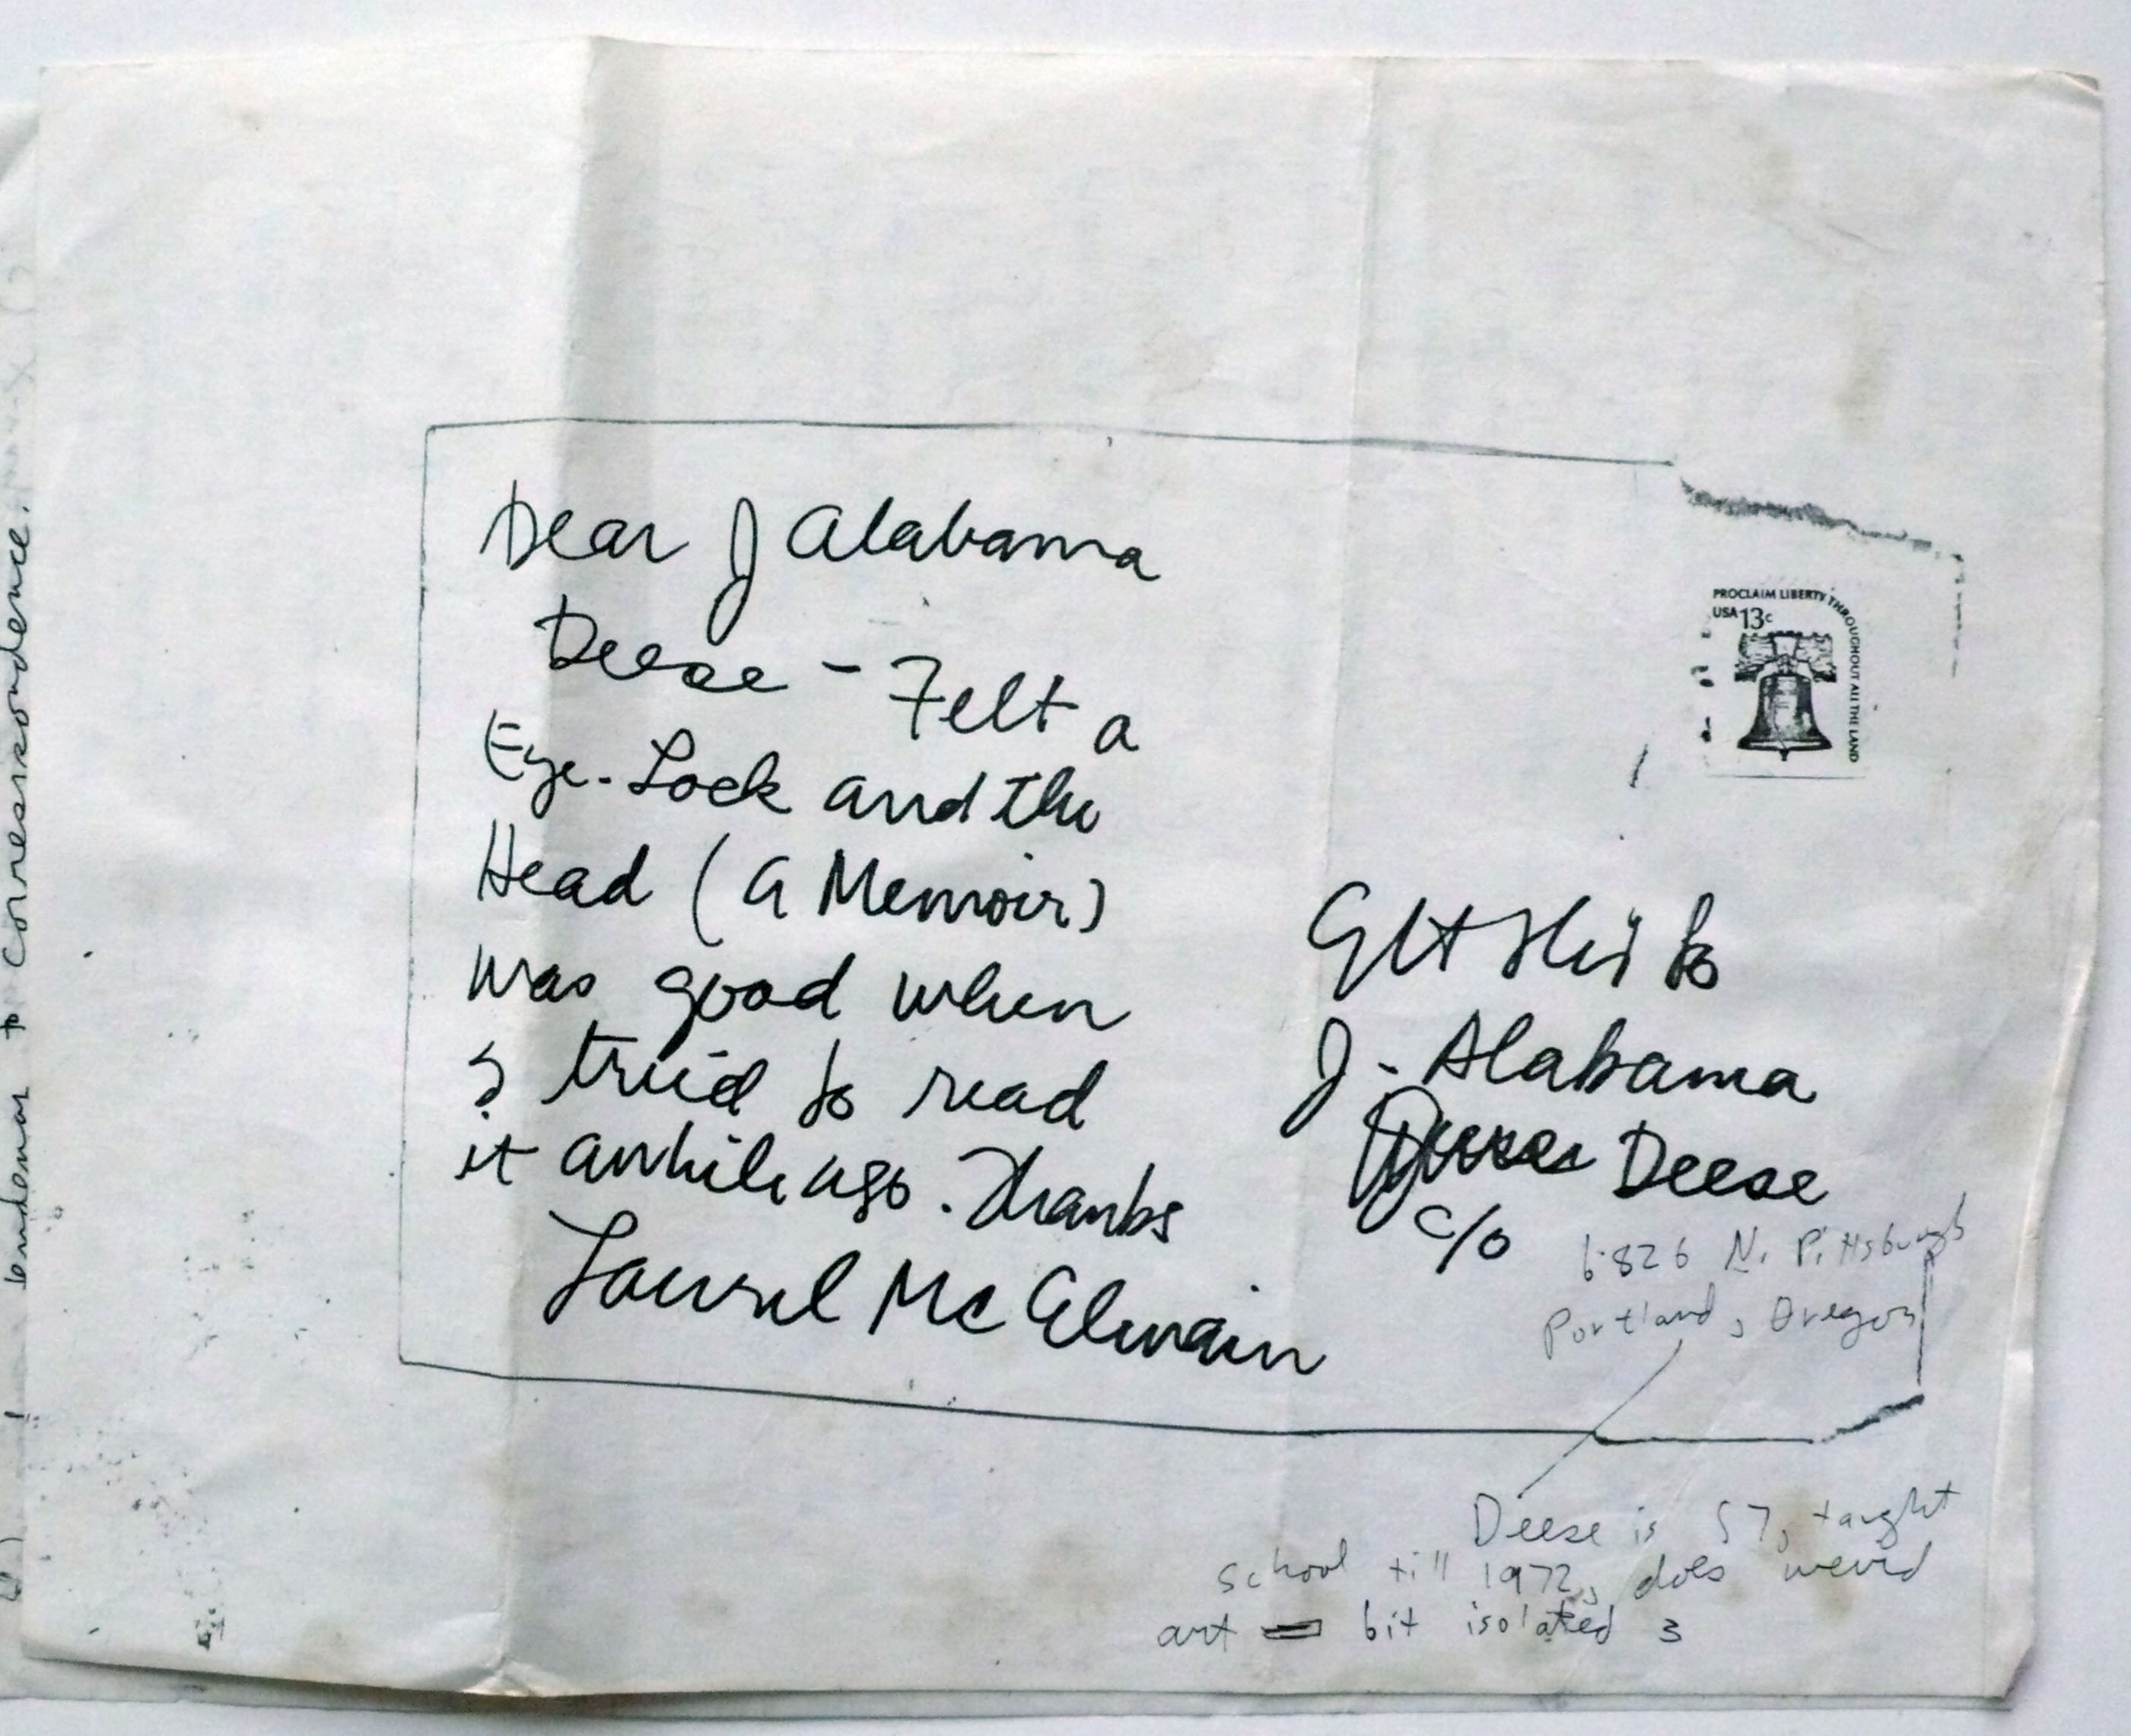 Dear J Alabama
Deese - Felt a
Eye-Lock and the
Head (a Memoir)
was good when
I tried to read
it awhile ago. Thanks
Laurel McElwain
PROCLAIM LIBERTY THROUGHOUT ALL THE LAND
USA 13c
Get this to
J. Alabama
Deese
c/o
6826 N. Pittsburgh
Portland, Oregon
Deese is 57, taught
school till 1972, does weird
art bit isolated
to correspondence.